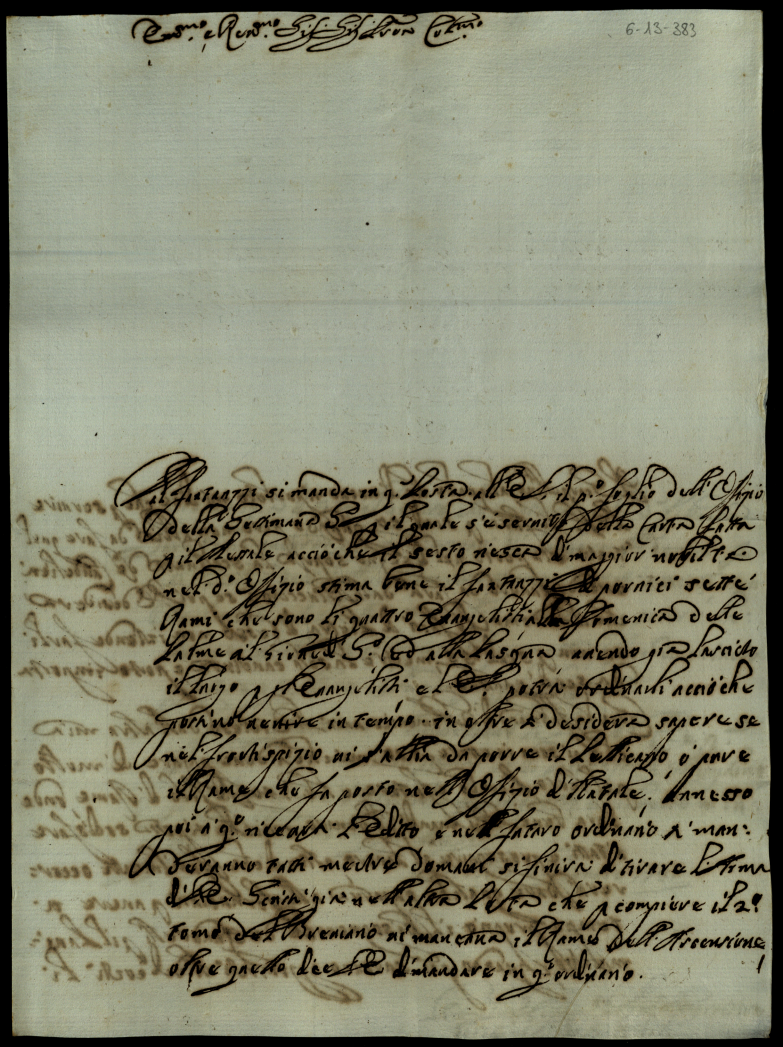 Em.mo e Rev.mo Sig. Sig. Pron Col.mo
6-13-383
Al Fantauzzi si manda in q.a Posta all' E. V. il p.o foglio dell'Ofizio
della Settimana S. p il quale s'è servito della Carta fatta
p il Messale acciò che il sesto riesca di maggior nobiltà
nel d.o Offizio stima bene il Fantauzzi di porvici sette
Rami che sono li quattro Evangelisti alla Domenica delle
Palme al Giovedì S.o ed alla Pasqua avendo già lasciato
il luogo p gl'Evangelisti e l'E. V. potrà ordinarli acciò che
possino venire in tempo. in oltre si desidera sapere se
nel frontispizio vi s'abbia da porre il Pellicano ò pure
il Rame che fu posto nell'Offizio di Natale. Annesso
poi à q.o riceverà l'Edito e nell'futuro ordinario si man:
deranno tutti mentre domani si finirà di tirare l'ultima
di già nell'altra Posta che p compiere il 2.o
tomo del Breviario vi mancava il Rame dell'Ascensione
oltre quello dice l'E. V. di mandare in q.o ordinario.